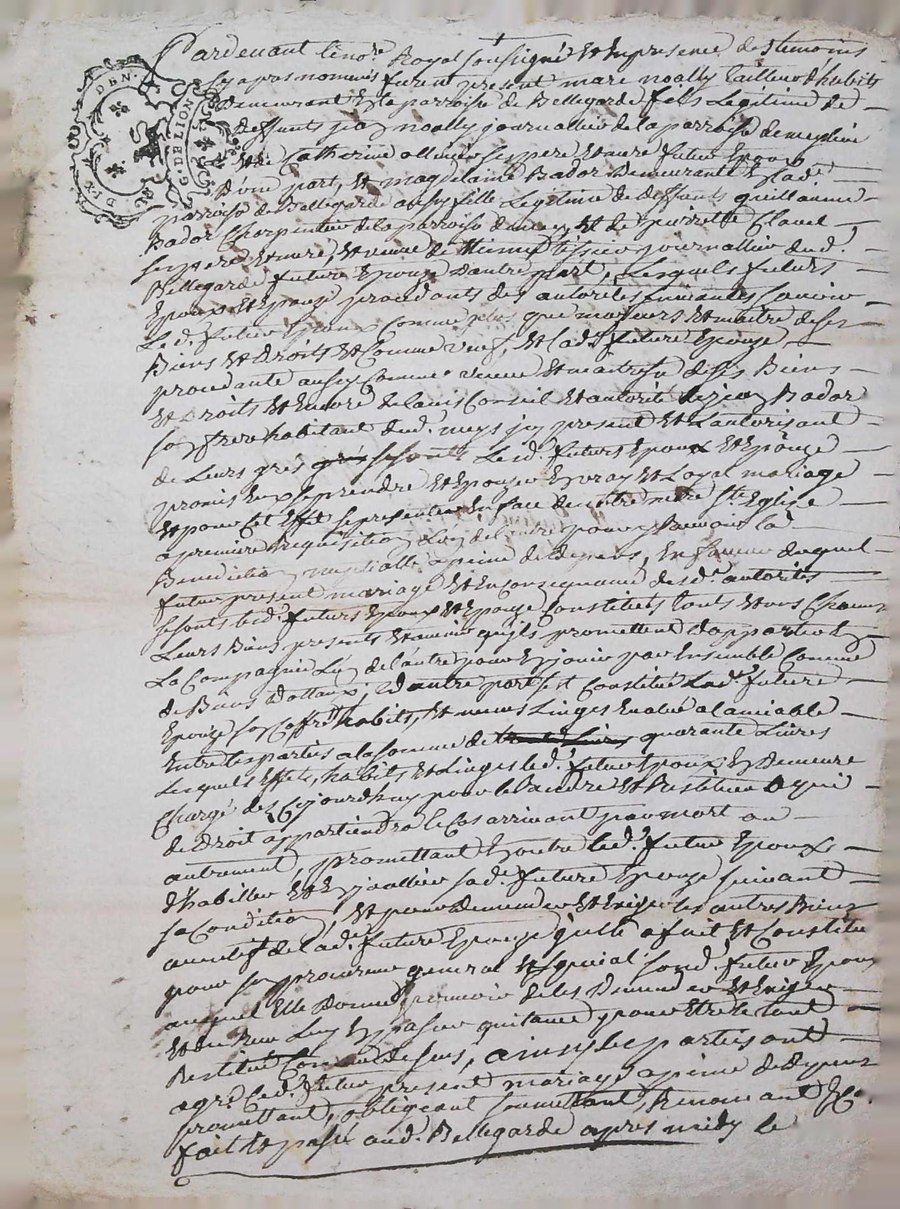 Pardevant le no.re Royal soussigné Et En presence des temoins
Cy apres nommés furent present marc noally tailleur d'habits
Demeurant En la parroisse de Bellegarde fils Legitime de
Deffunts noally journallier de la parroisse de
Et de Catherine ses pere Et mere futur Epoux
D'une part, Et magdelaine Bador Demeurante En lad.e
parroisse de Bellegarde aussy fille Legitime de deffunts guillaume
Bador Charpentier de la parroisse de meys, Et de pierrette Clavel
ses pere Et mere, Et veuve de tissier journallier dud.
Bellegarde future Epouze D'autre part, Lesquels futurs
Epoux Et Epouze procedants des autorités suivantes scavoir
Led. futur Epoux Comme plus que majeur Et maitre de ses
Biens Et Droits Et Comme veuf, Et lad. future Epouze
procedante aussy Comme veuve Et maitresse de ses Biens
Et Droits Et Encore de lavis Conseil Et autorité de Bador
son frere habitant dud. meys icy present Et Lautorisant
de Leurs grés Lesd. futurs Epoux Et Epouze
promis Eux prendre Et Epouzer En vray Et Loyal mariage
Et pour Cet Effet se presenter En face de notre mere Ste Eglise
a premiere Requisition Lun de lautre pour y Recevoir la
Benediction nuptialle a peine de depens, En faveur duquel
futur present mariage Et En Consequence desd. autorités
se sont lesd. futurs Epoux Et Epouze Constitués touts Et uns Chacuns
Leurs Biens presents Et avenir quils promettent d'apporter En
La Compagnie Lun de lautre pour En jouir par Ensemble Comme
de Biens Dottaux, D'autre part sest Constitué Lad. future
Epouze son Coffre habits, Et menus Linges Evalué a lamiable
Entre les parties a la somme de quarante Livres
Lesquels Effets, habits Et Linges led. futur Epoux En demeure
Chargé des Cejourdhuy pour les Rendre Et Restituer a qui
de droit appartiendra le Cas arrivant par mort ou
autrement, promettant En outre led. futur Epoux
d'habiller Et Enjoallier sad. future Epouze suivant
sa Condition, Et pour demander Et Exiger les autres Biens
de lad. future Epouze qu'elle a fait Et Constitué
pour son procureur general Et special sond. futur Epoux
auquel Elle Donne pouvoir de les Demander Et Exiger
Et du Reçu Luy En passer quitance, pour Etre le tout
Restitué Comme dessus, ainsy les parties ont
agréé Led. futur present mariage a peine de depens
promettant, obligeant soumettant, Renonçant &Ca.
fait Et passé aud. Bellegarde apres midy le